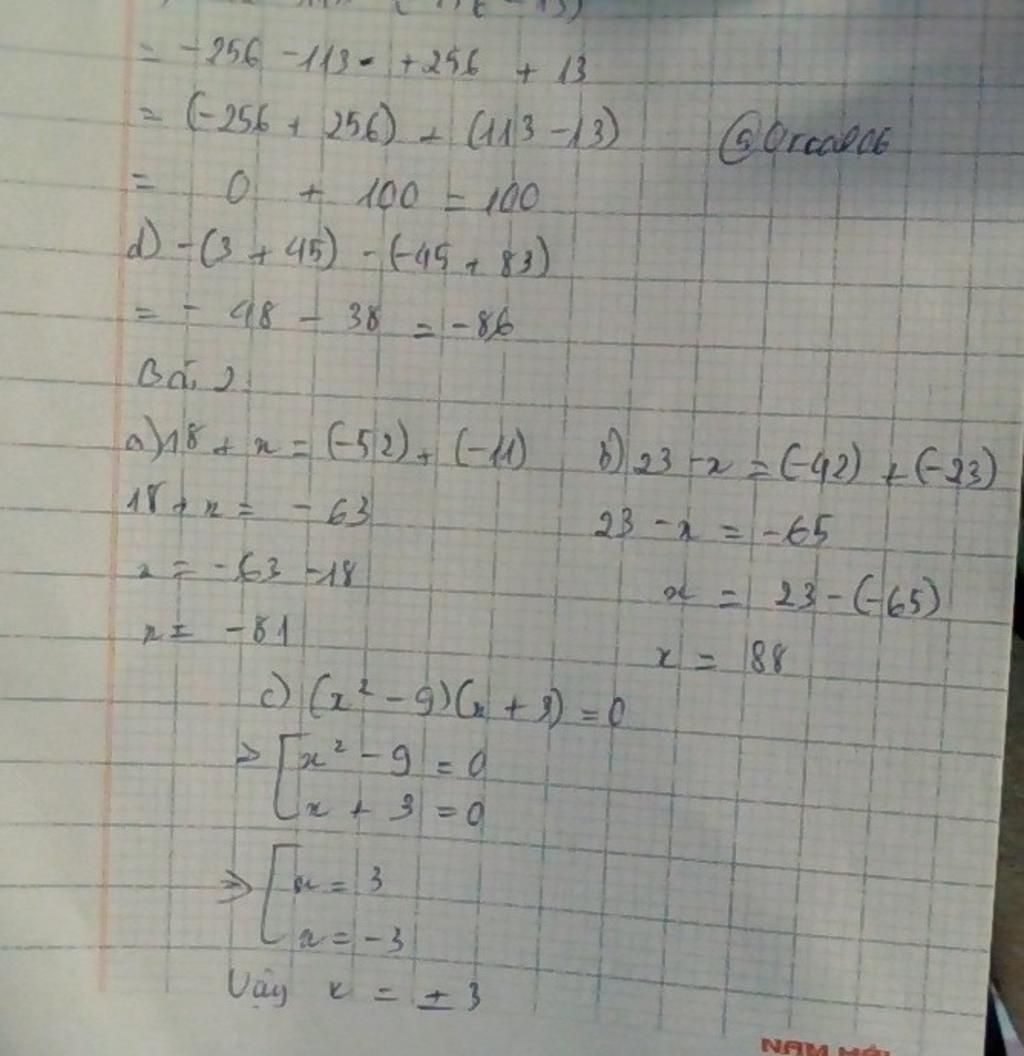 = -256 - 113 + 256 + 13
= (-256 + 256) + (113 - 13)
= 0 + 100 = 100
d) -(3 + 45) - (-45 + 83)
= - 48 - 38 = -86
Bài 2
a) 18 + x = (-52) + (-11)
18 + x = - 63
x = - 63 - 18
x = - 81
b) 23 - x = (-42) + (-23)
23 - x = -65
x = 23 - (-65)
x = 88
c) (x² - 9)(x + 3) = 0
=> [x² - 9 = 0
x + 3 = 0
=> [x = 3
x = -3
Vậy x = ± 3
NAM